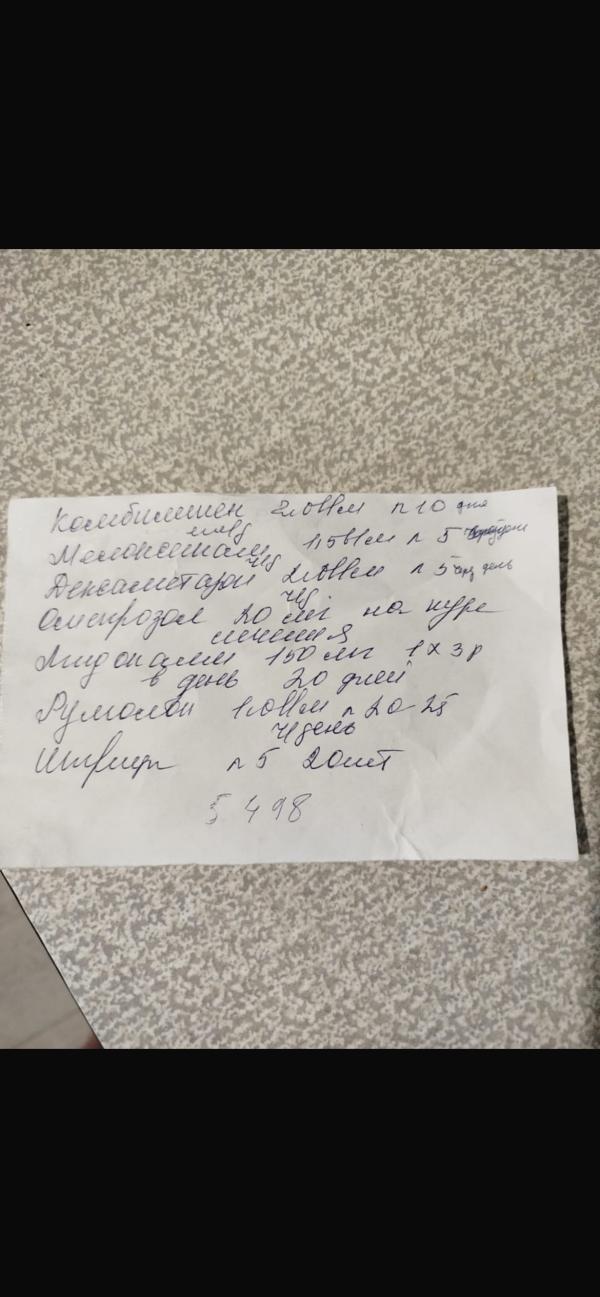 Комбилипен 2.0 в/м n 10 дня
ежд
Мелоксикам 1.5 в/м n 5
Дексаметазон 2.0 в/м n 5 чрз день
Ч/д
Омепрозол 20 мг на курс
лечения
Мидокалм 150 мг 1 х 3 р
в день 20 дней
Румалон 1.0 в/м n 20-25
Ч/день
Шприцы n 5 20 шт
5 498